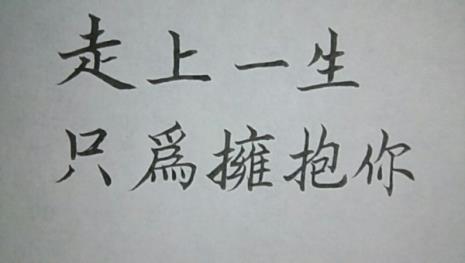 走上一生
只爲擁抱你